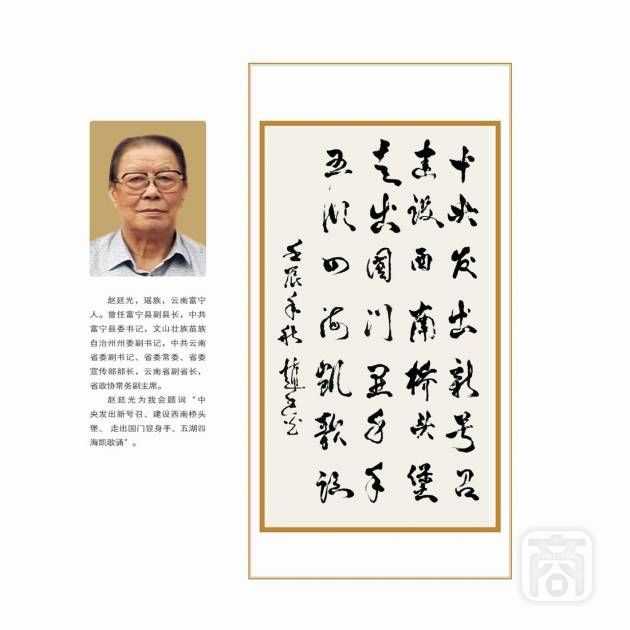 赵廷光，瑶族，云南富宁
人。曾任富宁县副县长，中共
富宁县委书记，文山壮族苗族
自治州州委副书记，中共云南
省委副书记、省委常委、省委
宣传部部长，云南省副省长，
省政协常务副主席。
赵廷光为我会题词“中
央发出新号召、建设西南桥头
堡、走出国门显身手、五湖四
海凯歌诵”。
中央发出新号召
建设西南桥头堡
走出国门显身手
五湖四海凯歌诵
壬辰年秋 赵廷光
商